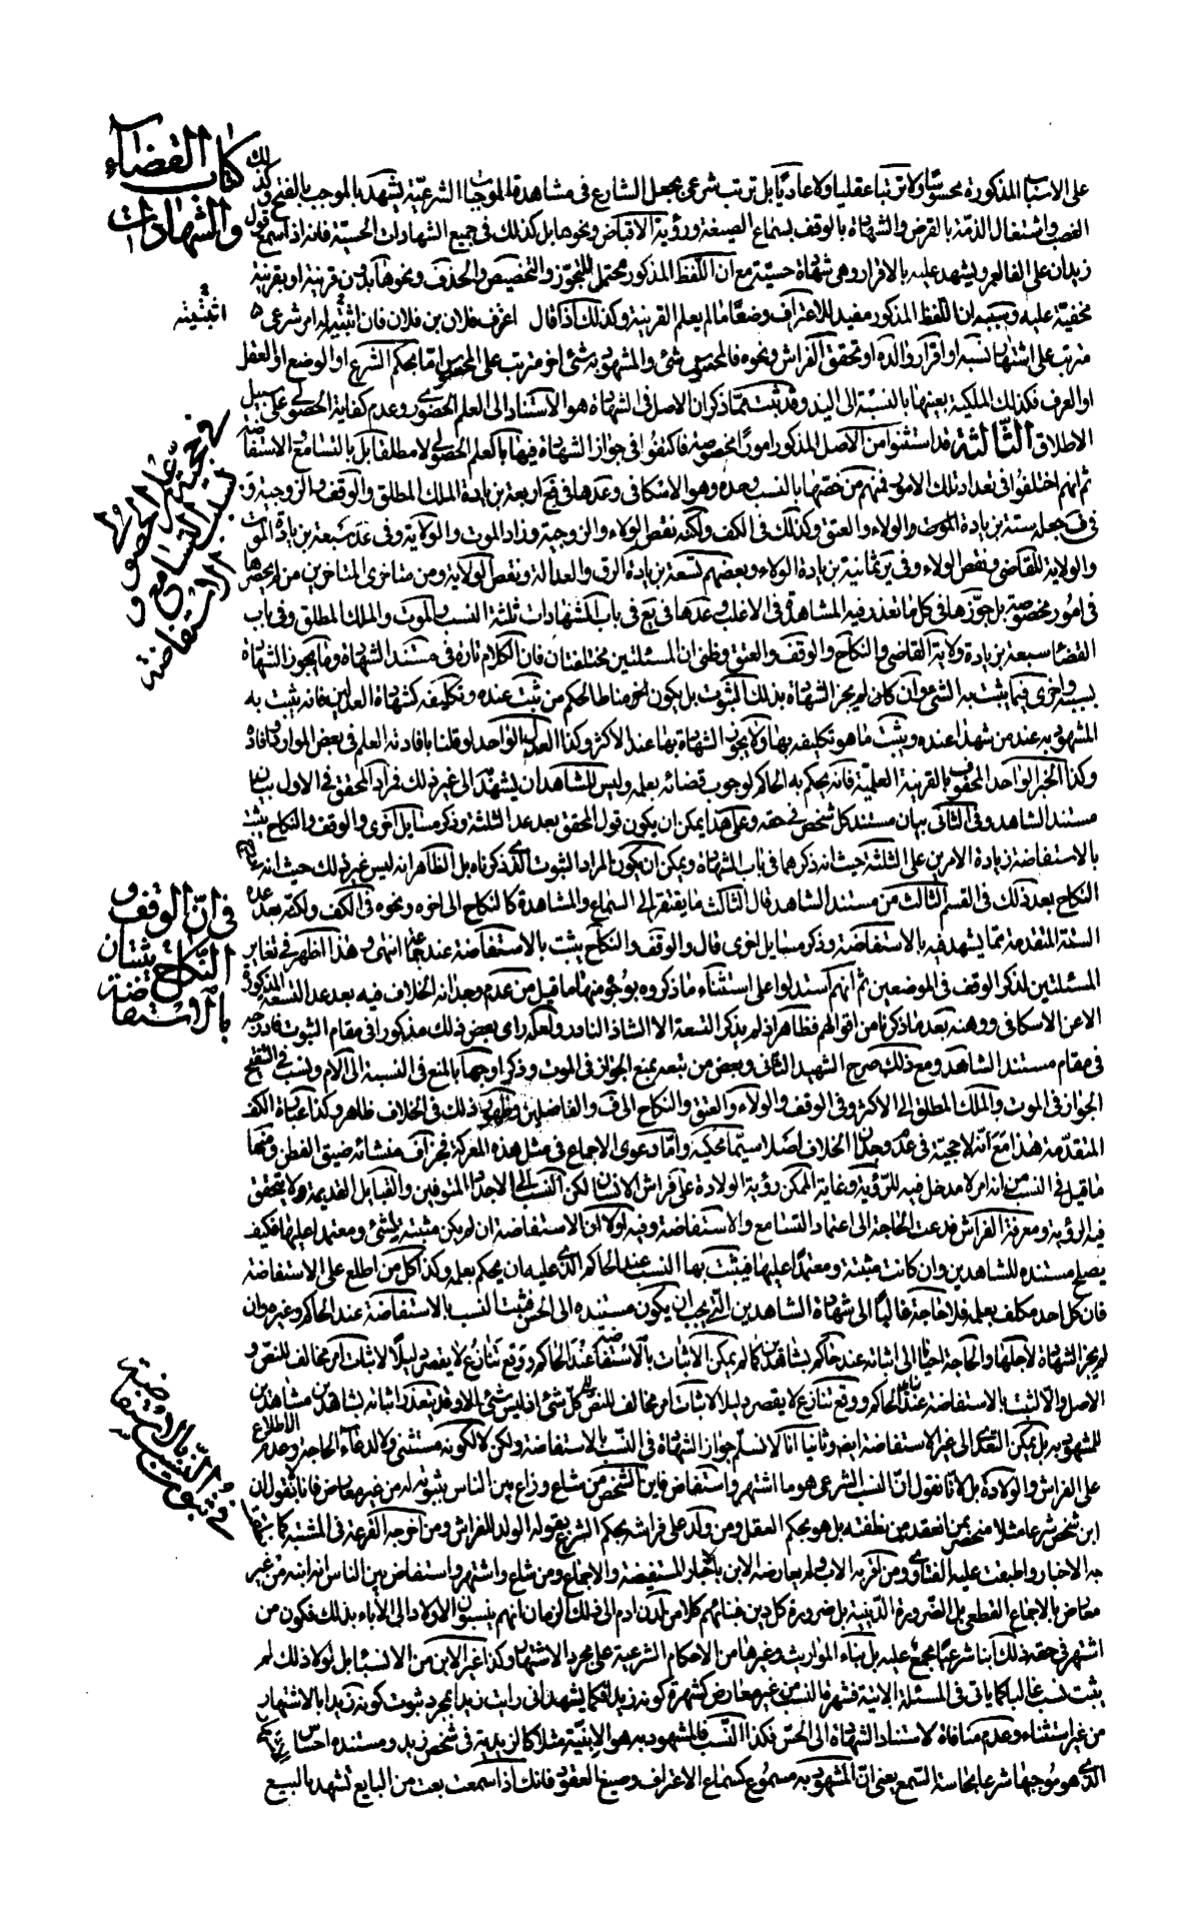 كتاب القضاء
والشهادات
على الاسباب المذكورة محسوسيا ولا ترتبا عقليا ولا عاديا بل ترتب شرعي بجعل الشارع فى مشاهدة الموجبات الشرعية يشهد بالموجب بالفتح وكذلك
الغصب واشتغال الذمة بالقرض والشهادة بالوقف بسماع الصيغة ورؤية الاقباض ونحوها بل كذلك فى جميع الشهادات الحسية فانه اذا سمع قول
زيد ان على الفا لعمرو يشهد عليه بالاقرار وهى شهادة حسية مع ان اللفظ المذكور محتمل للتجوز والتخصيص والحذف ونحوها بدون قرينة او بقرينة
مخفية عليه وسببه ان اللفظ المذكور مفيد للاعتراف وضعا ما لم يعلم القرينة وكذلك اذا قال اعرف فلان بن فلان فان اثنينيته امر شرعى
اثبتينه
مترتب على اشتهار نسبه او اقرار والده او تحقق الفراش ونحوه فالمحسوس شئ والمشهود به شئ اخر مترتب على المحسوس اما بحكم الشرع او الوضع او العقل
او العرف فكذلك الملكية بعينها بالنسبة الى اليد وقد ثبت مما ذكر ان الاصل فى الشهادة هو الاستناد الى العلم الحضورى وعدم كفاية الحصولى على سبيل
الاطلاق الثالثة قد استثنوا من الاصل المذكور امورا مخصوصة فاكتفوا فى جواز الشهادة فيها بالعلم الحصولى لا مطلقا بل بالتسامع الاستفاضة
فى حجية العلم الحصولى
بسبب التسامع و
الاستفاضة
ثم انهم اختلفوا فى تعداد تلك الامور فمنهم من خصها بالنسب وحده وهو الاسكافى وعدها فى يع اربعة بزيادة الملك المطلق والوقف والزوجية و
فى ف جعله ستة بزيادة الموت والولاء والعتق وكذلك فى الكف ولكنه نقص الولاء والزوجية وزاد الموت والولاية وفى عد سبعة بزيادة الموت
والولاية للقاضى ونقص الولاء وفى ير ثمانية بزيادة الولاء وبعضهم تسعة بزيادة الرق والعدالة ونقص الولاية ومن متاخرى المتاخرين من لم يحصرها
فى امور مخصوصة بل جوزها فى كل ما تعذر فيه المشاهدة فى الاغلب وعدها فى يع فى باب الشهادات ثلثة النسب والموت والملك المطلق وفى باب
القضاء سبعة بزيادة ولاية القاضى والنكاح والوقف والعتق وظنى ان المسئلتين مختلفتان فان الكلام تارة فى مستند الشهادة وما يجوز الشهادة
بسببه واخرى فيما يثبت به الشئ وان كان لم يجز الشهادة بذلك الثبوت بل يكون مناطا لحكم من ثبت عنده وتكليفه كشهادة العدلين فانه يثبت به
المشهود به عند من شهدا عنده ويثبت ما هو تكليفه بها ولا يجوز الشهادة بها عند الاكثر وكذا العدل الواحد لو قلنا بافادته العلم فى بعض الموارد
وكذا الخبر الواحد المحفوف بالقرينة العلمية فانه يحكم به الحاكم لوجوب قضائه بعلمه وليس للشاهد ان يشهد الى غير ذلك فمراد المحقق فى الاول بيان
مستند الشاهد وفى الثانى بيان مستند كل شخص فى حقه وعلى هذا يمكن ان يكون قول المحقق بعد عد الثلثة وذكر مسايل اخرى والوقف والنكاح يثبت
بالاستفاضة زيادة الامرين على الثلثة حيث انه ذكرهما فى باب الشهادة ويمكن ان يكون المراد الثبوت الذى ذكرناه بل الظاهر انه ليس غير ذلك حيث انه عد
النكاح بعد ذلك فى القسم الثالث من مستند الشاهد قال الثالث ما يفتقر الى السماع والمشاهدة كالنكاح الى اخره ونحوه فى الكف ولكنه بعد عده
فى ان الوقف و
النكاح يثبتان
بالاستفاضة
الستة المتقدمة مما يشهد فيه بالاستفاضة وذكر مسايل اخرى قال والوقف والنكاح يثبت بالاستفاضة عند جماعة انتهى وهذا اظهر فى تغاير
المسئلتين لذكر الوقف فى الموضعين ثم انهم استدلوا على استثناء ما ذكروه بوجوه منها ما قيل من عدم وجدانه الخلاف فيه بعد عد التسعة المذكورة
الا عن الاسكافى ووهنه بعد ما ذكرنا من اقوالهم فظاهر اذ لم يذكر التسعة الا الشاذ النادر ولعله راى بعض ذلك مذكورا فى مقام الثبوت فادرجه
فى مقام مستند الشاهد ومع ذلك صرح الشهيد الثانى وبعض من تبعه بمنع الجواز فى الموت وذكر اوجها بالمنع فى النسبة الى الام ونسب فى التنقيح
الجواز فى الموت والملك المطلق الى الاكثر وفى الوقف والولاء والعتق والنكاح الى ف والفاضلين وظهور ذلك فى الخلاف ظاهر وكذا عبارة الكف
المتقدمة هذا مع انه لا حجية فى عدم وجدان الخلاف اصلا سيما محكيه واما دعوى الاجماع فى مثل هذه المعركة فجزاف منشائه ضيق الفطن ومنها
ما قيل فى النسب من انه امر لا مدخل فيه للرؤية وغاية الممكن رؤية الولادة على فراش الانسان لكن النسب الى الاجداد المتوفين والقبايل القديمة لا يتحقق
فيه الرؤية ومعرفة الفراش فدعت الحاجة الى اعتماد التسامع والاستفاضة وفيه اولا ان الاستفاضة ان لم يكن مثبتة لشئ ومعتمدا عليها فكيف
يصلح مستنده للشاهدين وان كانت مثبتة ومعتمدا عليها فيثبت بها النسب عند الحاكم الذى عليه ان يحكم بعلمه وكذا كل من اطلع على الاستفاضة
فان كل احد مكلف بعلمه فلا حاجة غالبا الى شهادة الشاهدين التى يجب ان يكون مستنده الى الحس فثبت النسب بالاستفاضة عند الحاكم وغيره وان
لم يجز الشهادة لاجلها والحاجة احيانا الى اثباته عند حاكم بشاهدين لما لم يمكن الاثبات بالاستفاضة عند الحاكم ووقع تنازع لا يقصر دليلا لاثبات امر مخالف للنص و
الاصل والا لثبت بالاستفاضة عند الحاكم ووقع تنازع لا يقصر دليلا لاثبات امر مخالف للنص كل شئ اذ ليس شئ الا وقد يتعذر اثباته بشاهدين مشاهدين
فى ثبوت النسب بالاستفاضة
للمشهود به بل يمكن التعدى الى غير الاستفاضة ايضا وثانيا انا لا نسلم جواز الشهادة فى النسب بالاستفاضة ولكن لا لكونه مستثنى ولا لدعاء الحاجة وعدم الاطلاع
على الفراش والولادة بل لانا نقول ان النسب الشرعى هو ما اشتهر واستفاض فاين الشخص من شاع وذاع بين الناس بنوته له من غير معارض فانا نقول ان
ابن شخص شرعا مثلا منحصر بمن انعقد من نطفته بل هو بحكم العقل ومن ولد على فراشه بحكم الشرع بقوله الولد للفراش ومن اخرجه القرعة فى المشتبه كما شهد
به الاخبار واطبقت عليه الفتاوى ومن اقر به الاب ولم يعارضه الابن بالاخبار المستفيضة والاجماع ومن شاع واشتهر واستفاض بين الناس انه ابنه من غير
معارض بالاجماع القطعى بل الضرورة الدينية بل ضرورة كل دين فبنائهم كلا من لدن ادم الى ذلك الزمان انهم ينسبون الاولاد الى الاباء بذلك فكون من
اشتهر فى حقه ذلك ابنا شرعيا مجمع عليه بل بناء المواريث وغيرها من الاحكام الشرعية على مجرد الاشتهار وكذا غير الابن من الانساب بل لولا ذلك لم
يثبت نسب غالبا كما ياتى فى المسئلة الاتية فشهرة النسب من غير معارض كشهرة كونه زيدا فكما يشهد انى رايت زيدا بمجرد ثبوت كونه زيدا بالاشتهار
من غير استثناء وعدم منافاة لاستناد الشهادة الى الحس فكذا النسب فالمشهود به هو الابنية مثلا كالزيدية فى شخص زيد ومستنده احساس
الذى هو موجبها شرعا بحاسة السمع يعنى ان المشهود به مسموع كسماع الاعتراف وصيغ العقود فانك اذا سمعت بعت من البايع تشهد بالبيع